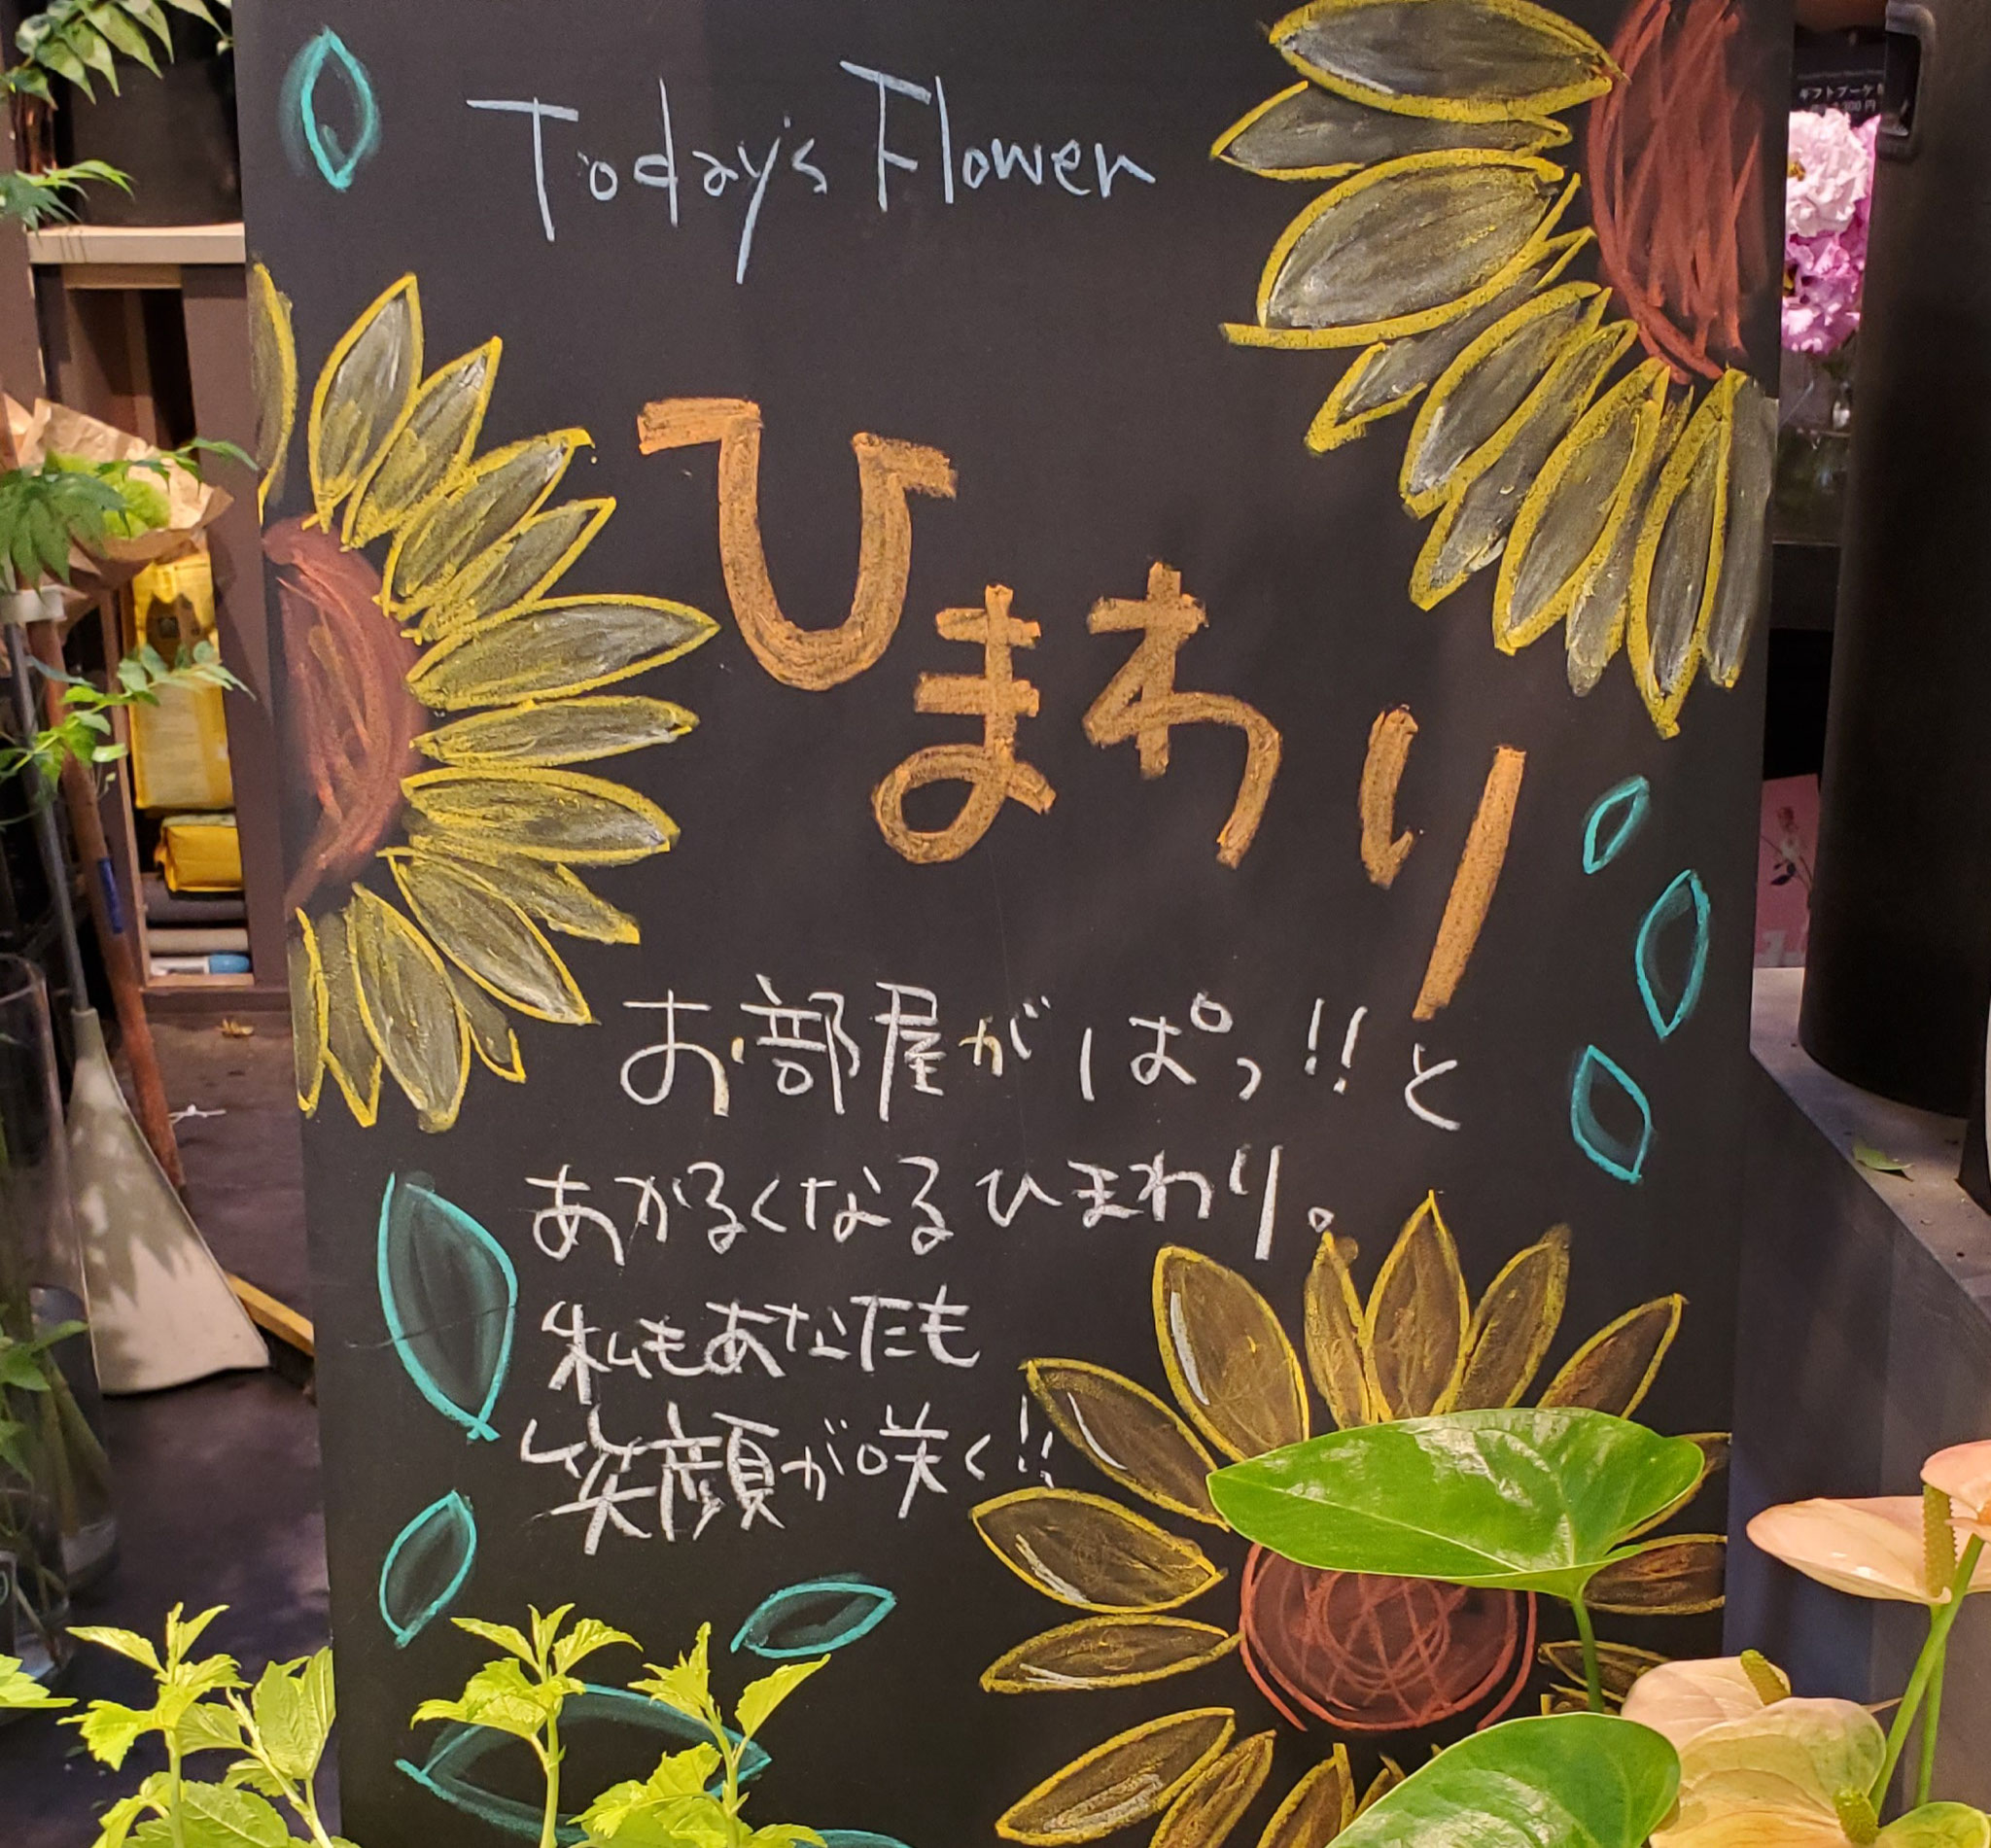 Today's Flower
ひまわり
お部屋がぱっ!!と
あかるくなるひまわり。
私もあなたも
笑顔が咲く!!
ギフトブーケ